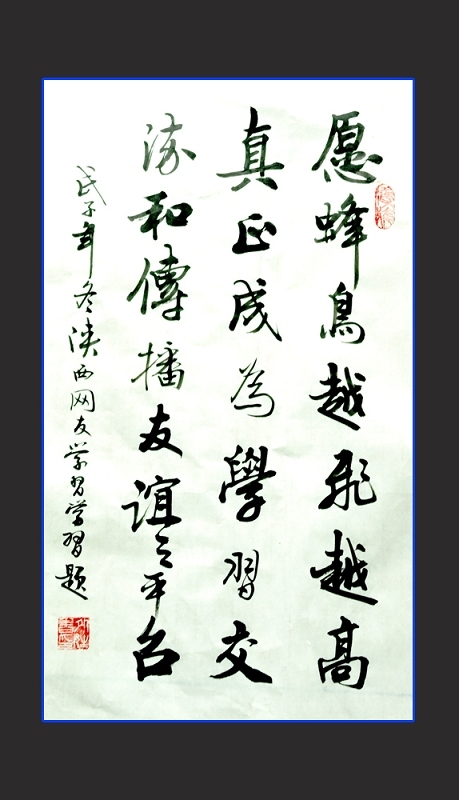 愿蜂鳥越飛越高
真正成為學習交
流和傳播友谊之平台
戊子年冬陕西网友学習学習题